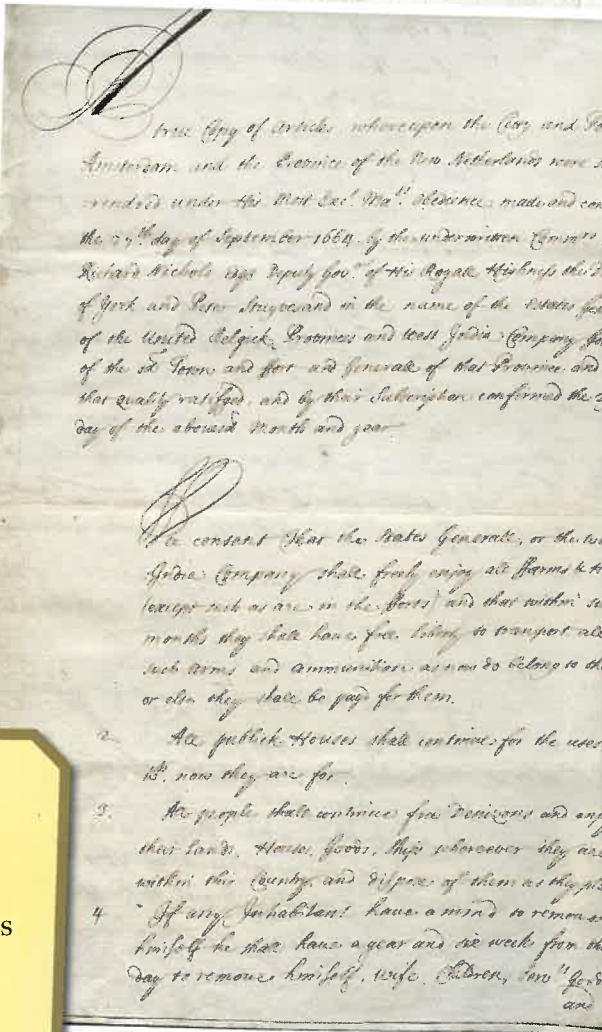 A
true Copy of Articles whereupon the Citty and
Amsterdam and the Province of the New Netherlands were
rendred under His Most Exc.t Ma.ts obedience made and con
the 27th day of September 1664 by the underwritten Com
Richard Nicholls Deputy Gov.r of His Royall Highness the
of York and Peter Stuyvesand in the name of the Estates
of the United Belgick Provinces and West Jndia Company
of the sd Town and ffort and Generall of that Province and
that quality ratifyed, and by their Subscription confirmed the
day of the abovesd Month and year
We consent That the States Generall, or the
Jndia Company shall freely enjoy all ffarms &
(except such as are in the fforts) and that within
months they shall have free liberty to transport all
such arms and ammunition as now do belong to
or else they shall be payd for them.
2. All publick Houses shall continue for the uses
now they are for.
3. All people shall continue free Denizons and
their Lands, Houses, Goods, Ships wheresoever they are
within this Country, and dispose of them as they
4 If any Jnhabitant have a mind to remove
himself he shall have a year and six week from
day to remove himself, wife, Children, Serv.ts Goods
and
s